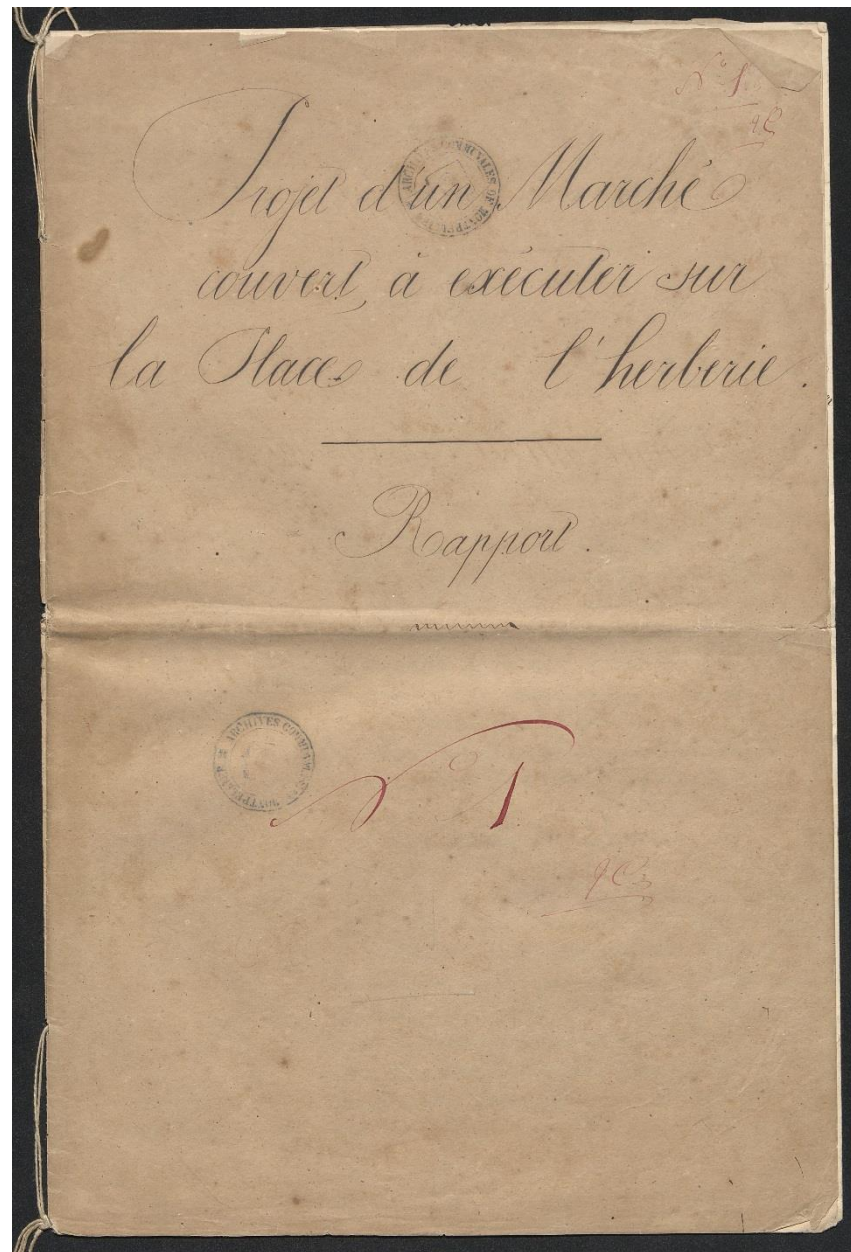 N° 1
Projet d'un Marché
couvert, à exécuter sur
la Place de l'herberie.
Rapport.
ARCHIVES COMMUNALES DE MONTPELLIER
ARCHIVES COMMUNALES DE MONTPELLIER
N° 1